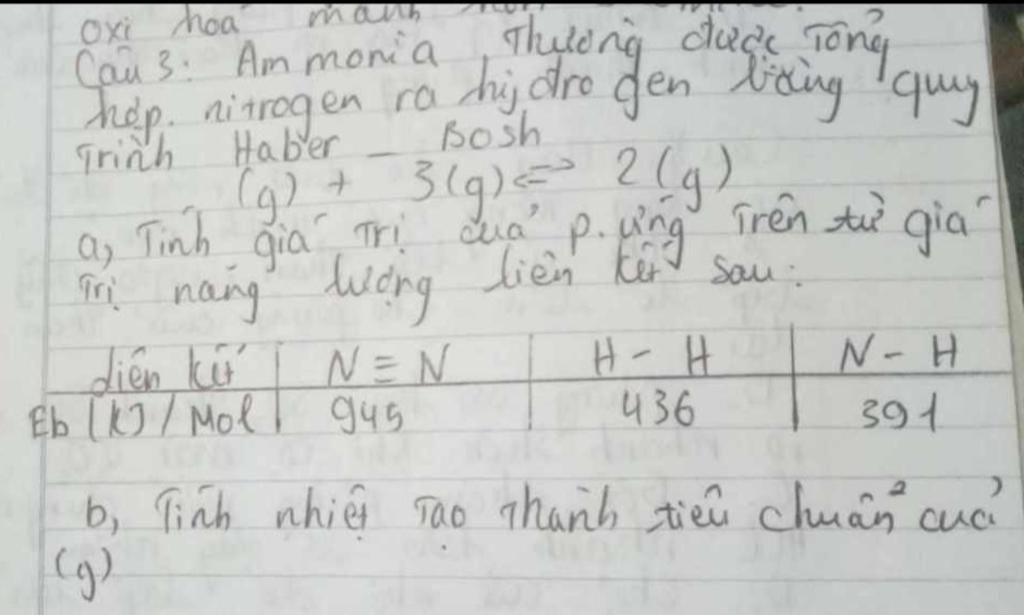 oxi hoá mạnh
Câu 3: Ammonia Thường được Tổng
hợp. nitrogen ra hyđrogen bằng quy
Trình Haber - Bosh
(g) + 3(g) ⇌ 2(g)
a, Tính giá Trị của p.ứng Trên từ giá
Trị năng lượng liên kết sau:
liên kết | N ≡ N | H - H | N - H
Eb (KJ/Mol | 945 | 436 | 391
b, Tính nhiệt Tạo Thành tiêu chuẩn của
(g)